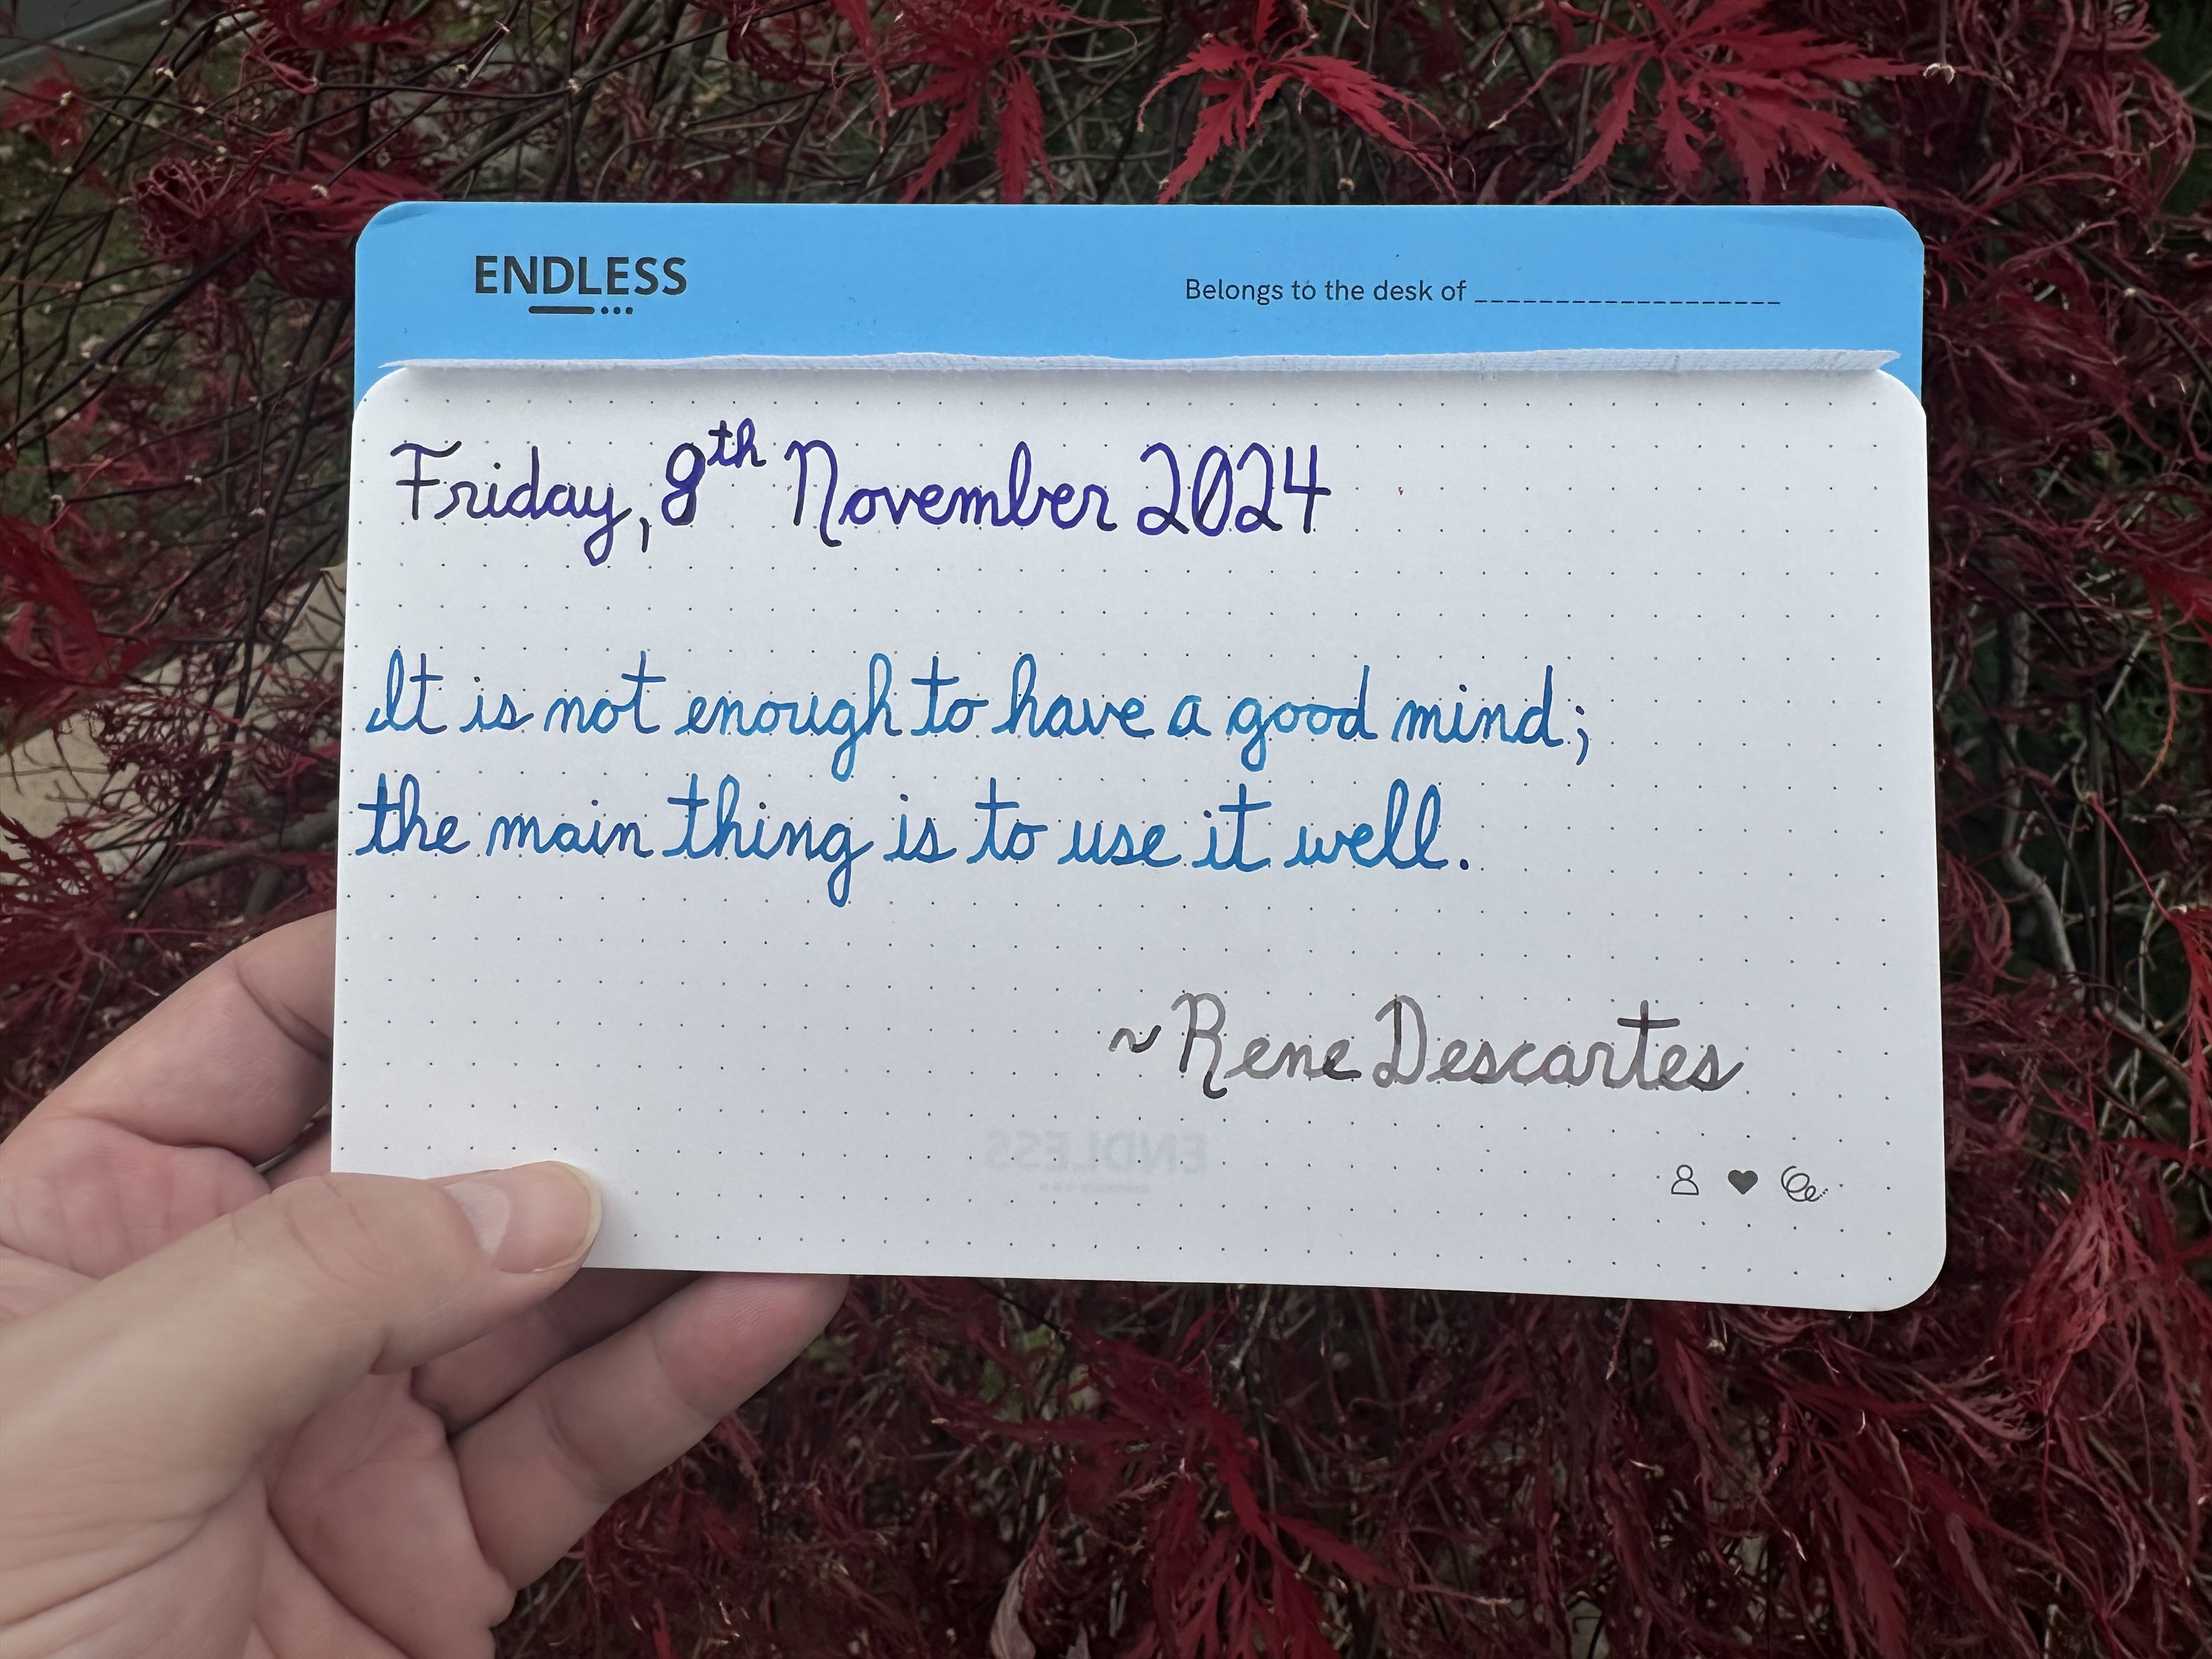 ENDLESS
Belongs to the desk of ___________________
Friday, 8th November 2024
It is not enough to have a good mind;
the main thing is to use it well.
~Rene Descartes
ENDLESS